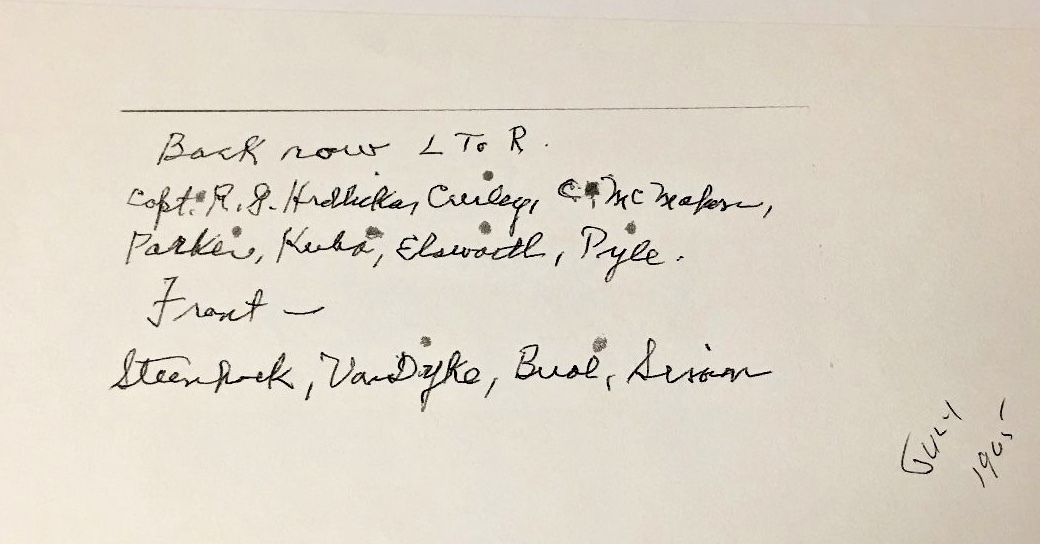 Back row L To R.
Capt. R. G. Hrdlicka, Curley, C. McMaken,
Parker, Kuba, Elsworth, Pyle.
Front —
Steenhoek, VanDyke, Buol,
July
1945